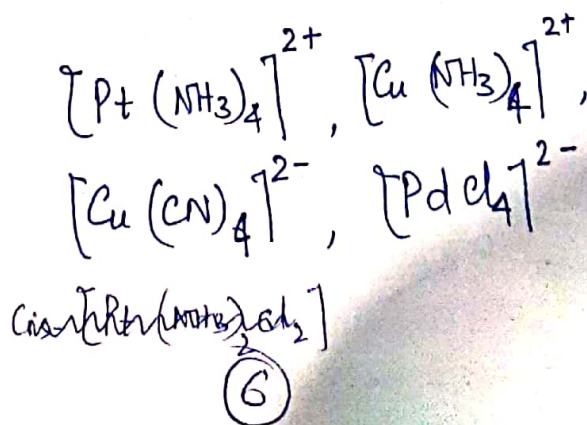 [Pt (NH3)4]2+, [Cu (NH3)4]2+,
[Cu (CN)4]2-, [PdCl4]2-
Cis-[Pt(NH3)2Cl2]
6